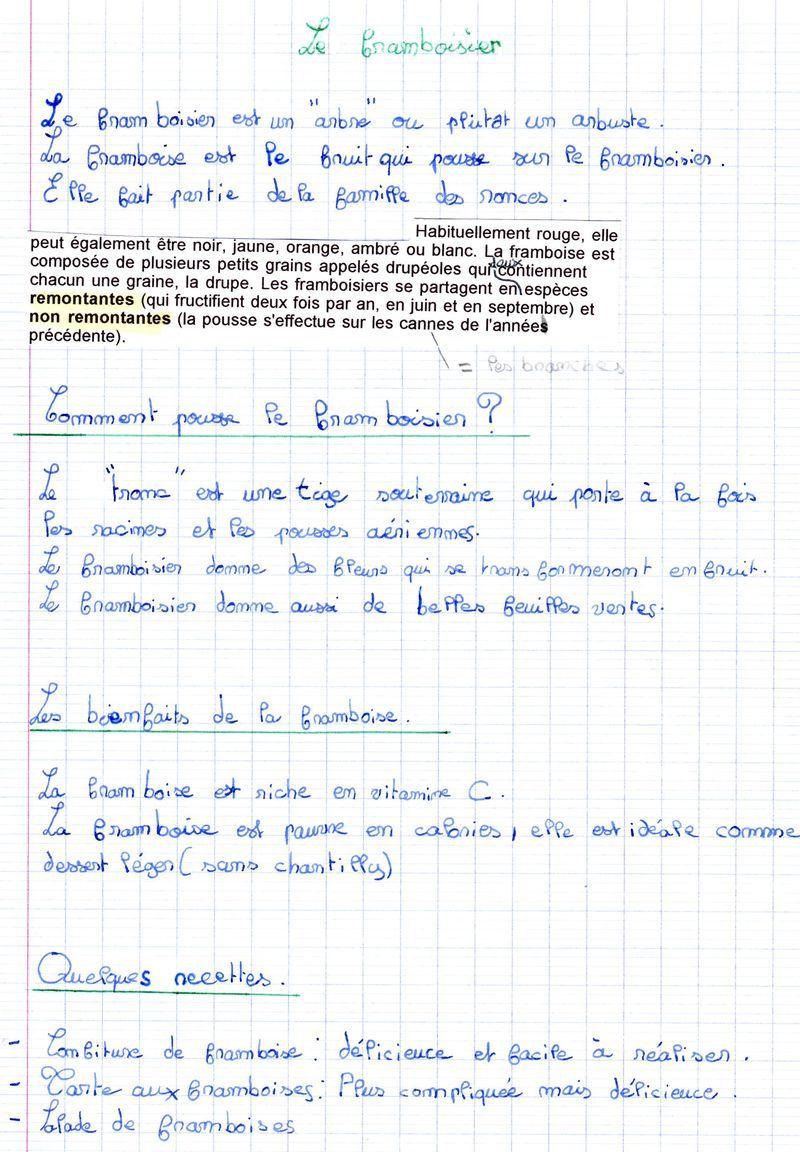 Le framboisier
Le framboisier est un "arbre" ou plutôt un arbuste.
La framboise est le fruit qui pousse sur le framboisier.
Elle fait partie de la famille des ronces.
Habituellement rouge, elle
peut également être noir, jaune, orange, ambré ou blanc. La framboise est
composée de plusieurs petits grains appelés drupéoles qui contiennent
chacun une graine, la drupe. Les framboisiers se partagent en deux espèces
remontantes (qui fructifient deux fois par an, en juin et en septembre) et
non remontantes (la pousse s'effectue sur les cannes de l'années
précédente).
= les branches
Comment pousse le framboisier ?
Le "tronc" est une tige souterraine qui porte à la fois
les racines et les pousses aériennes.
Le framboisier donne des fleurs qui se transformeront en fruit.
Le framboisier donne aussi de belles feuilles vertes.
Les bienfaits de la framboise.
La framboise est riche en vitamine C.
La framboise est pauvre en calories, elle est idéale comme
dessert léger (sans chantilly)
Quelques recettes.
- Confiture de framboise : délicieuce et facile à réaliser.
- Tarte aux framboises : Plus compliquée mais délicieuce.
- Salade de framboises